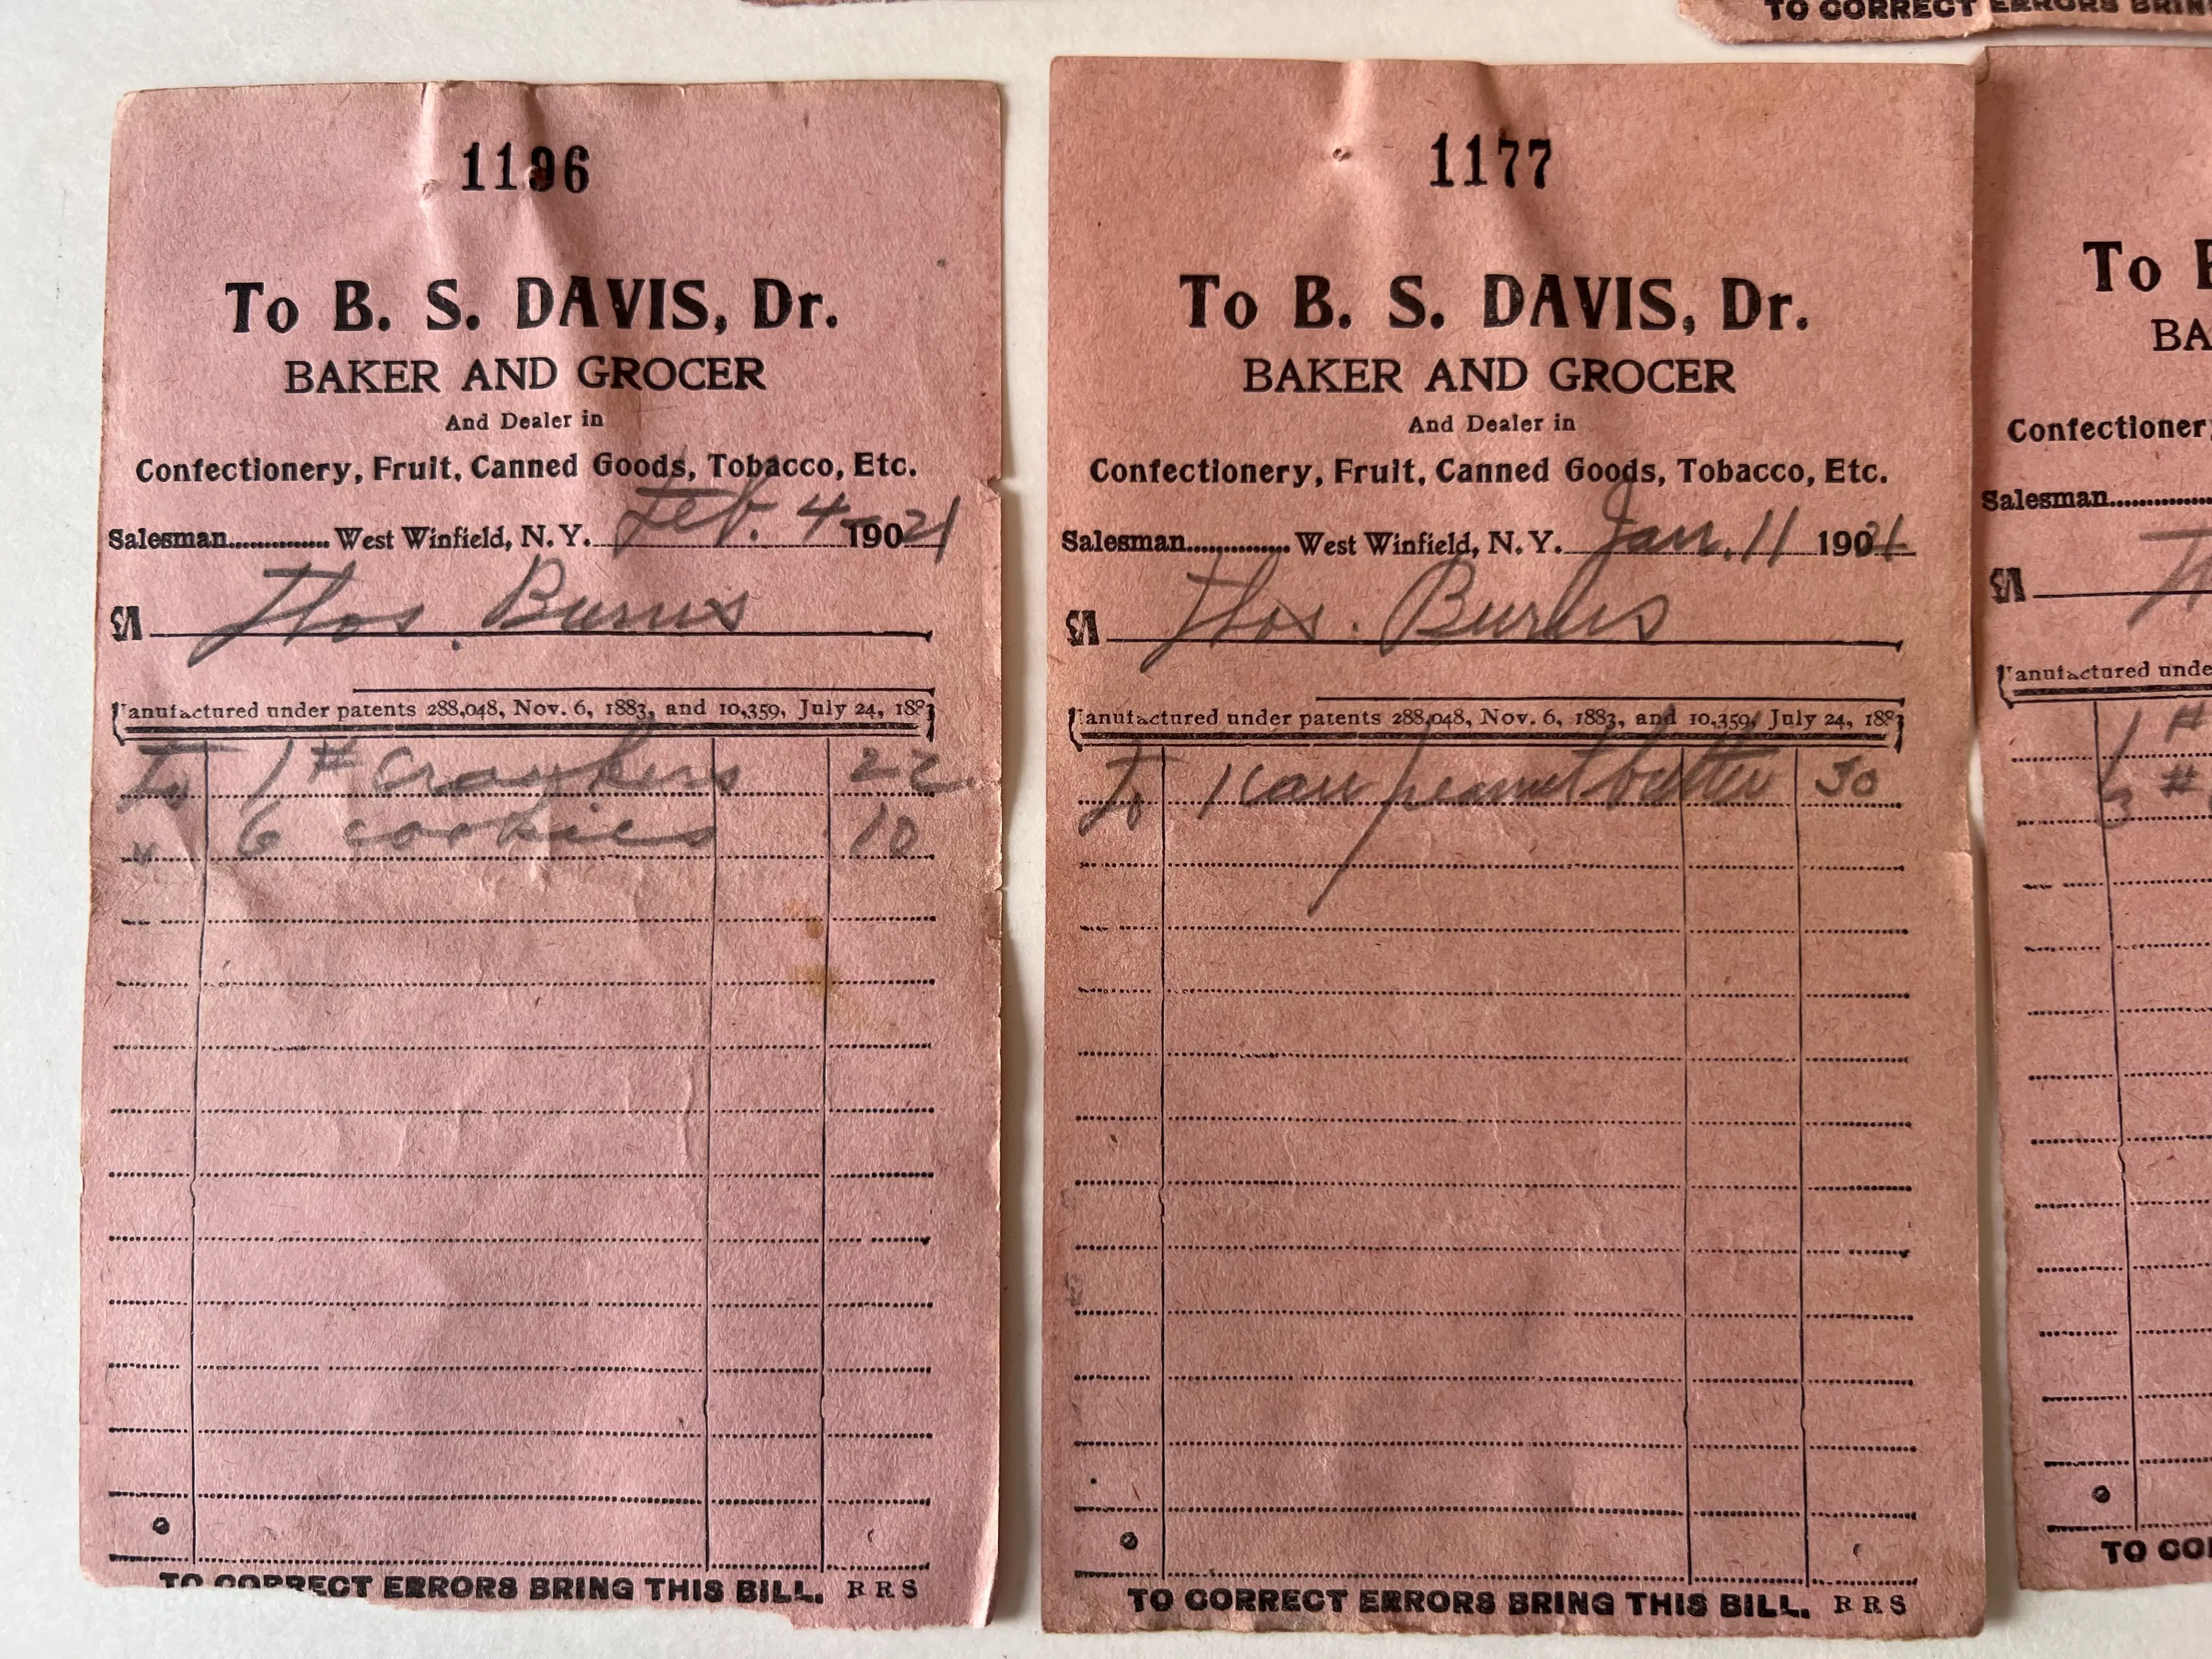 TO CORRECT ERRORS BRIN
1196
To B. S. DAVIS, Dr.
BAKER AND GROCER
And Dealer in
Confectionery, Fruit, Canned Goods, Tobacco, Etc.
Salesman.............. West Winfield, N. Y. Feb. 4 19021
M Thos. Burns
Manufactured under patents 288,048, Nov. 6, 1883, and 10,359, July 24, 188
To 1 # crackers 22
" 6 cookies 10
TO CORRECT ERRORS BRING THIS BILL. R R S
1177
To B. S. DAVIS, Dr.
BAKER AND GROCER
And Dealer in
Confectionery, Fruit, Canned Goods, Tobacco, Etc.
Salesman.............. West Winfield, N. Y. Jan. 11 1921
M Thos. Burns
Manufactured under patents 288,048, Nov. 6, 1883, and 10,359, July 24, 188
To 1 can peanut butter 30
TO CORRECT ERRORS BRING THIS BILL. R R S
To
BA
Confectioner
Salesman
M
Manufactured unde
1 #
3 #
TO CO